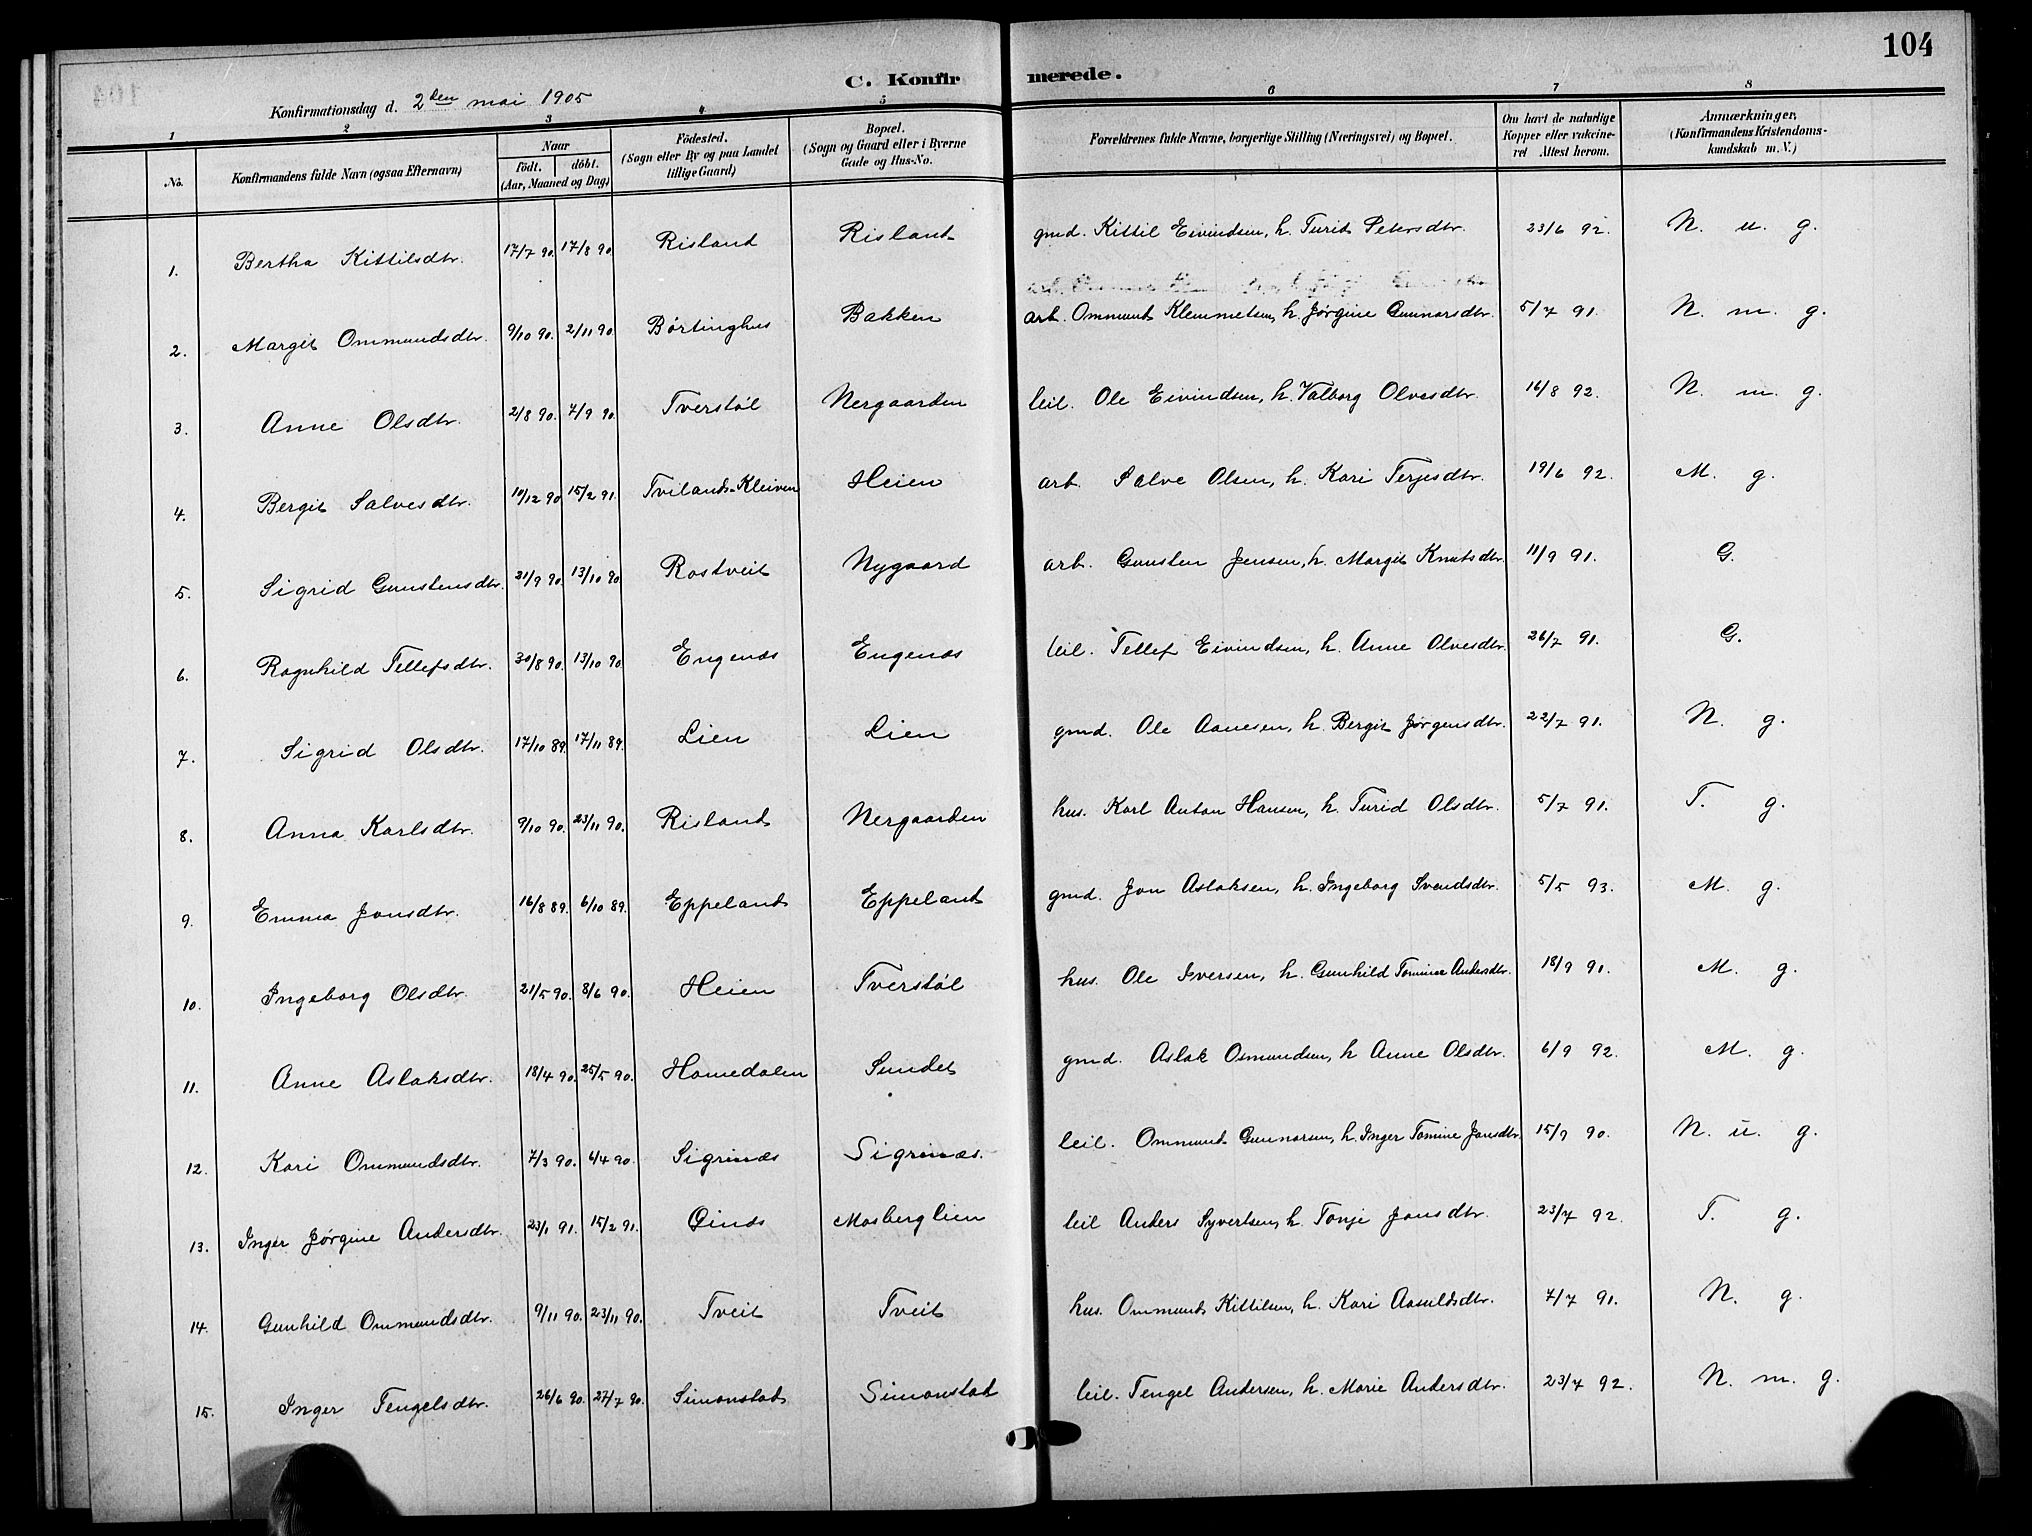 104
C. Konfirmerede.
Konfirmationsdag d. 2den mai 1905
1 2 3 4 5 6 7 8
No. Konfirmandens fulde Navn (ogsaa Efternavn) Naar födt. döbt. (Aar, Maaned og Dag) Födested. (Sogn eller By og paa Landet tillige Gaard) Bopæl. (Sogn og Gaard eller i Byerne Gade og Hus-No. Forældrenes fulde Navne, borgerlige Stilling (Næringsvei) og Bopæl. Om havt de naturlige Kopper eller vakcineret Attest herom. Anmærkninger, (Konfirmandens Kristendomskundskab m. V.)
1. Bertha Kittilsdtr. 17/7 90. 17/8 90. Risland Risland gmd. Kittil Eivindsen, h. Turid Petersdtr. 23/6 92. N. u. g.
2. Margit Ommundsdtr. 9/10 90. 2/11 90. Børtinghus Bakken arb. Ommund Klemmetsen, h. Jørgine Gunnarsdtr. 5/7 91. N. m. g.
3. Anne Olsdtr. 2/8 90. 7/9 90. Tverstøl Nergaarden leil. Ole Eivindsen, h. Valborg Olvesdtr. 16/8 92. N. m. g.
4. Bergit Salvesdtr. 10/12 90 15/2 91. Tvilands-Kleiven Heien arb. Salve Olsen, h. Kari Terjesdtr. 19/6 92. M. g.
5. Sigrid Gunstensdtr. 21/9 90. 13/10 90. Rostveit Nygaard arb. Gunsten Jensen, h. Margit Knutsdtr. 11/9 91. G.
6. Ragnhild Tellefsdtr. 30/8 90. 13/10 90. Engenæs Engenæs leil. Tellef Eivindsen, h. Anne Olvesdtr. 26/7 91. G.
7. Sigrid Olsdtr. 17/10 89. 17/11 89. Lien Lien gmd. Ole Aanesen, h. Bergit Jørgensdtr. 22/7 91. N. g.
8. Anna Karlsdtr. 9/10 90. 23/11 90. Risland Nergaarden hus. Karl Anton Hansen, h. Turid Olsdtr. 5/7 91. T. g.
9. Emma Jonsdtr. 16/8 89. 6/10 89. Eppeland Eppeland gmd. Jon Aslaksen, h. Ingeborg Svendsdtr. 5/5 93. M. g.
10. Ingeborg Olsdtr. 21/5 90. 8/6 90. Heien Tverstøl hus. Ole Iversen, h. Gunhild Tomine Andersdtr. 18/9 91. M. g.
11. Anne Aslaksdtr. 18/4 90. 25/5 90. Hamedalen Sundet gmd. Aslak Osmundsen, h. Anne Olsdtr. 6/9 92. M. g.
12. Kari Ommundsdtr. 7/3 90. 6/4 90. Sigrinæs Sigrinæs. leil. Ommund Gunnarsen, h. Inger Tomine Jonsdtr. 15/9 90. N. u. g.
13. Inger Jørgine Andersdtr. 23/1 91. 15/2 91. Mosberglien leil Anders Syvertsen, h. Tonje Jonsdtr. 23/7 92. T. g.
14. Gunhild Ommundsdtr. 9/11 90. 23/11 90. Tveit Tveit hus. Ommund Kittilsen, h. Kari Aasuldsdtr. 7/7 91. N. g.
15. Inger Tengelsdtr. 26/6 90. 27/7 90. Simonstad Simonstad leil. Tengel Andersen, h. Marie Andersdtr. 23/7 92. N. m. g.